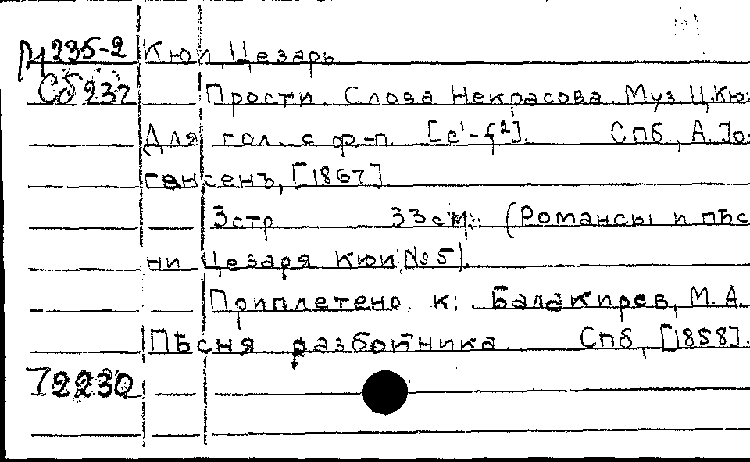 М 235-2 Кюи, Цезарь
Сб 237 Прости. Слова Некрасова. Муз. Ц. Кю
Для гол. с ф-п. [c¹-f²]. Спб., А. Io-
гансенъ, [1867]
3 стр. 33 см. (Романсы и пѣс
ни Цезаря Кюи, № 5).
Приплетено к: Балакирев, М. А.
Пѣсня разбойника. Спб, [1858].
72230